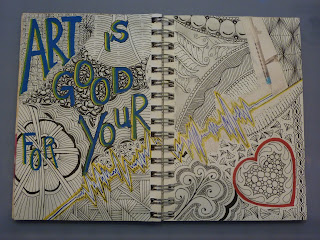 ART IS
GOOD
FOR YOUR